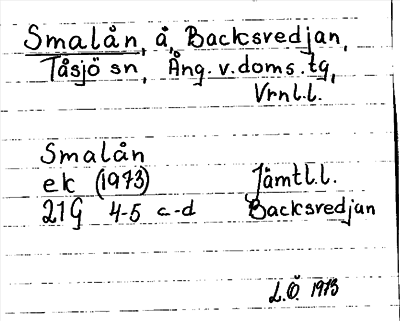 Smalån, å, Backsvedjan,
Tåsjö sn, Ång. v. doms. tg,
Vrnl.l.
Smalån
ek (1973) Jämtl.l.
21G 4-5 c-d Backsvedjan
L.Ö. 1973